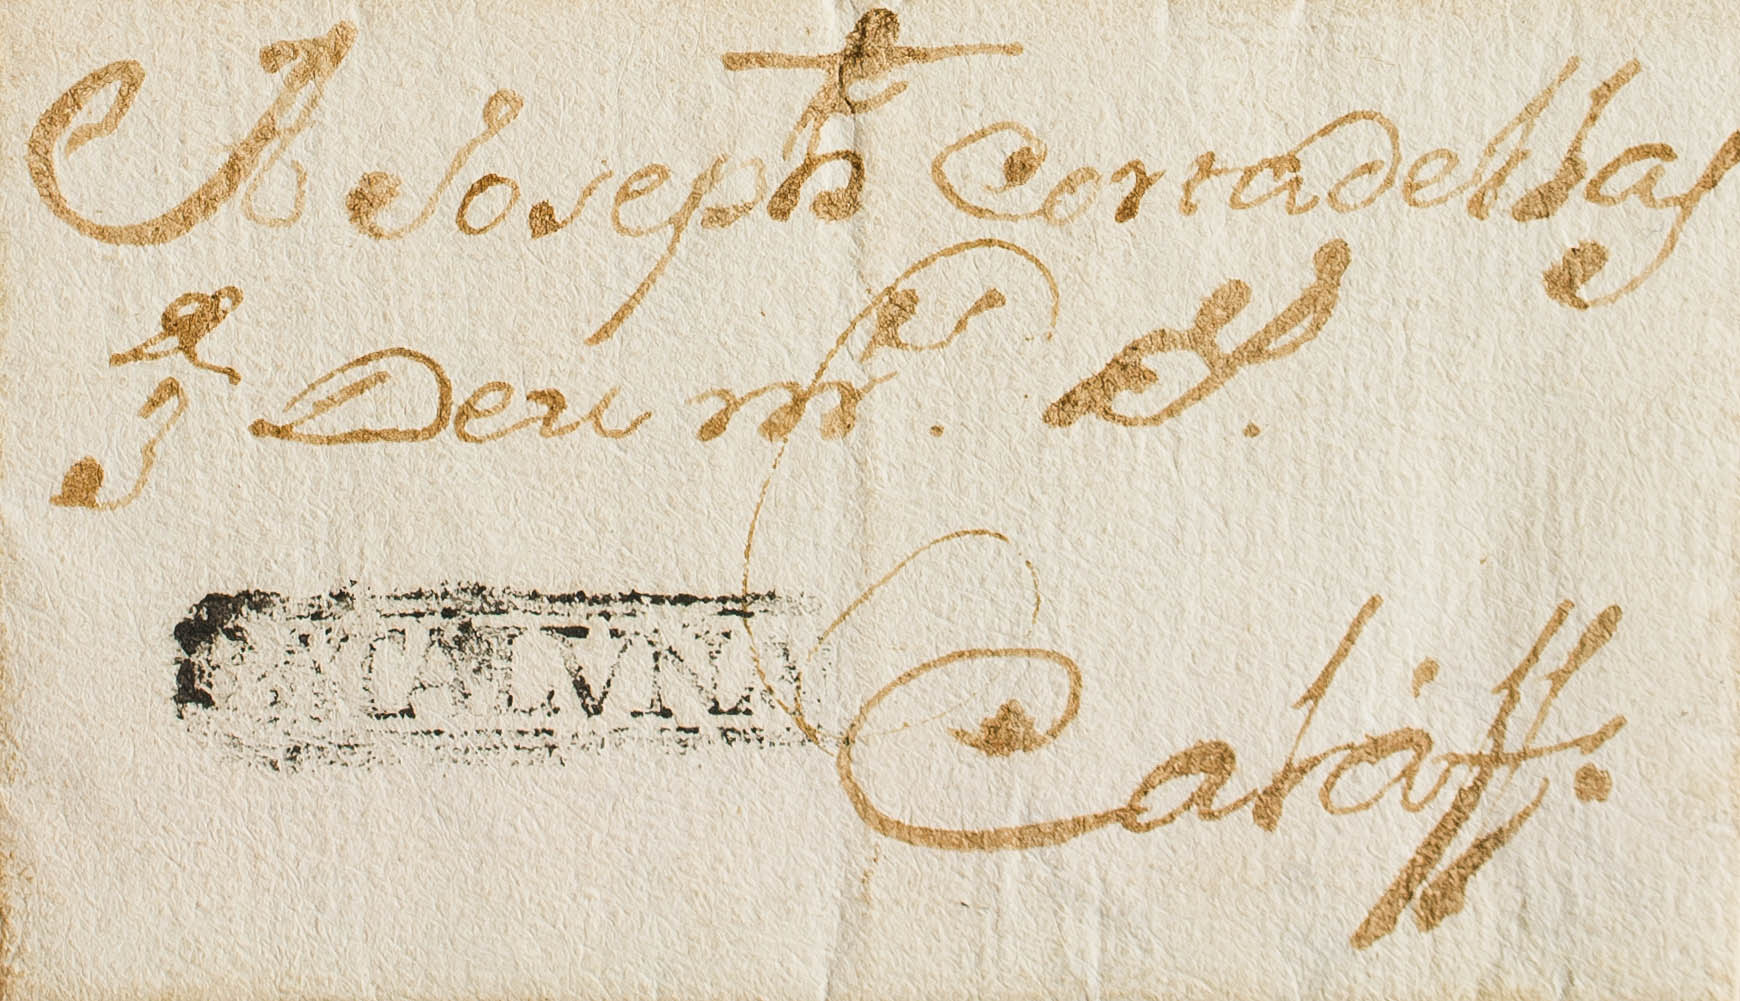 A Joseph Cortadellas
Deu m.r S.
CATALUÑA
Calaff.